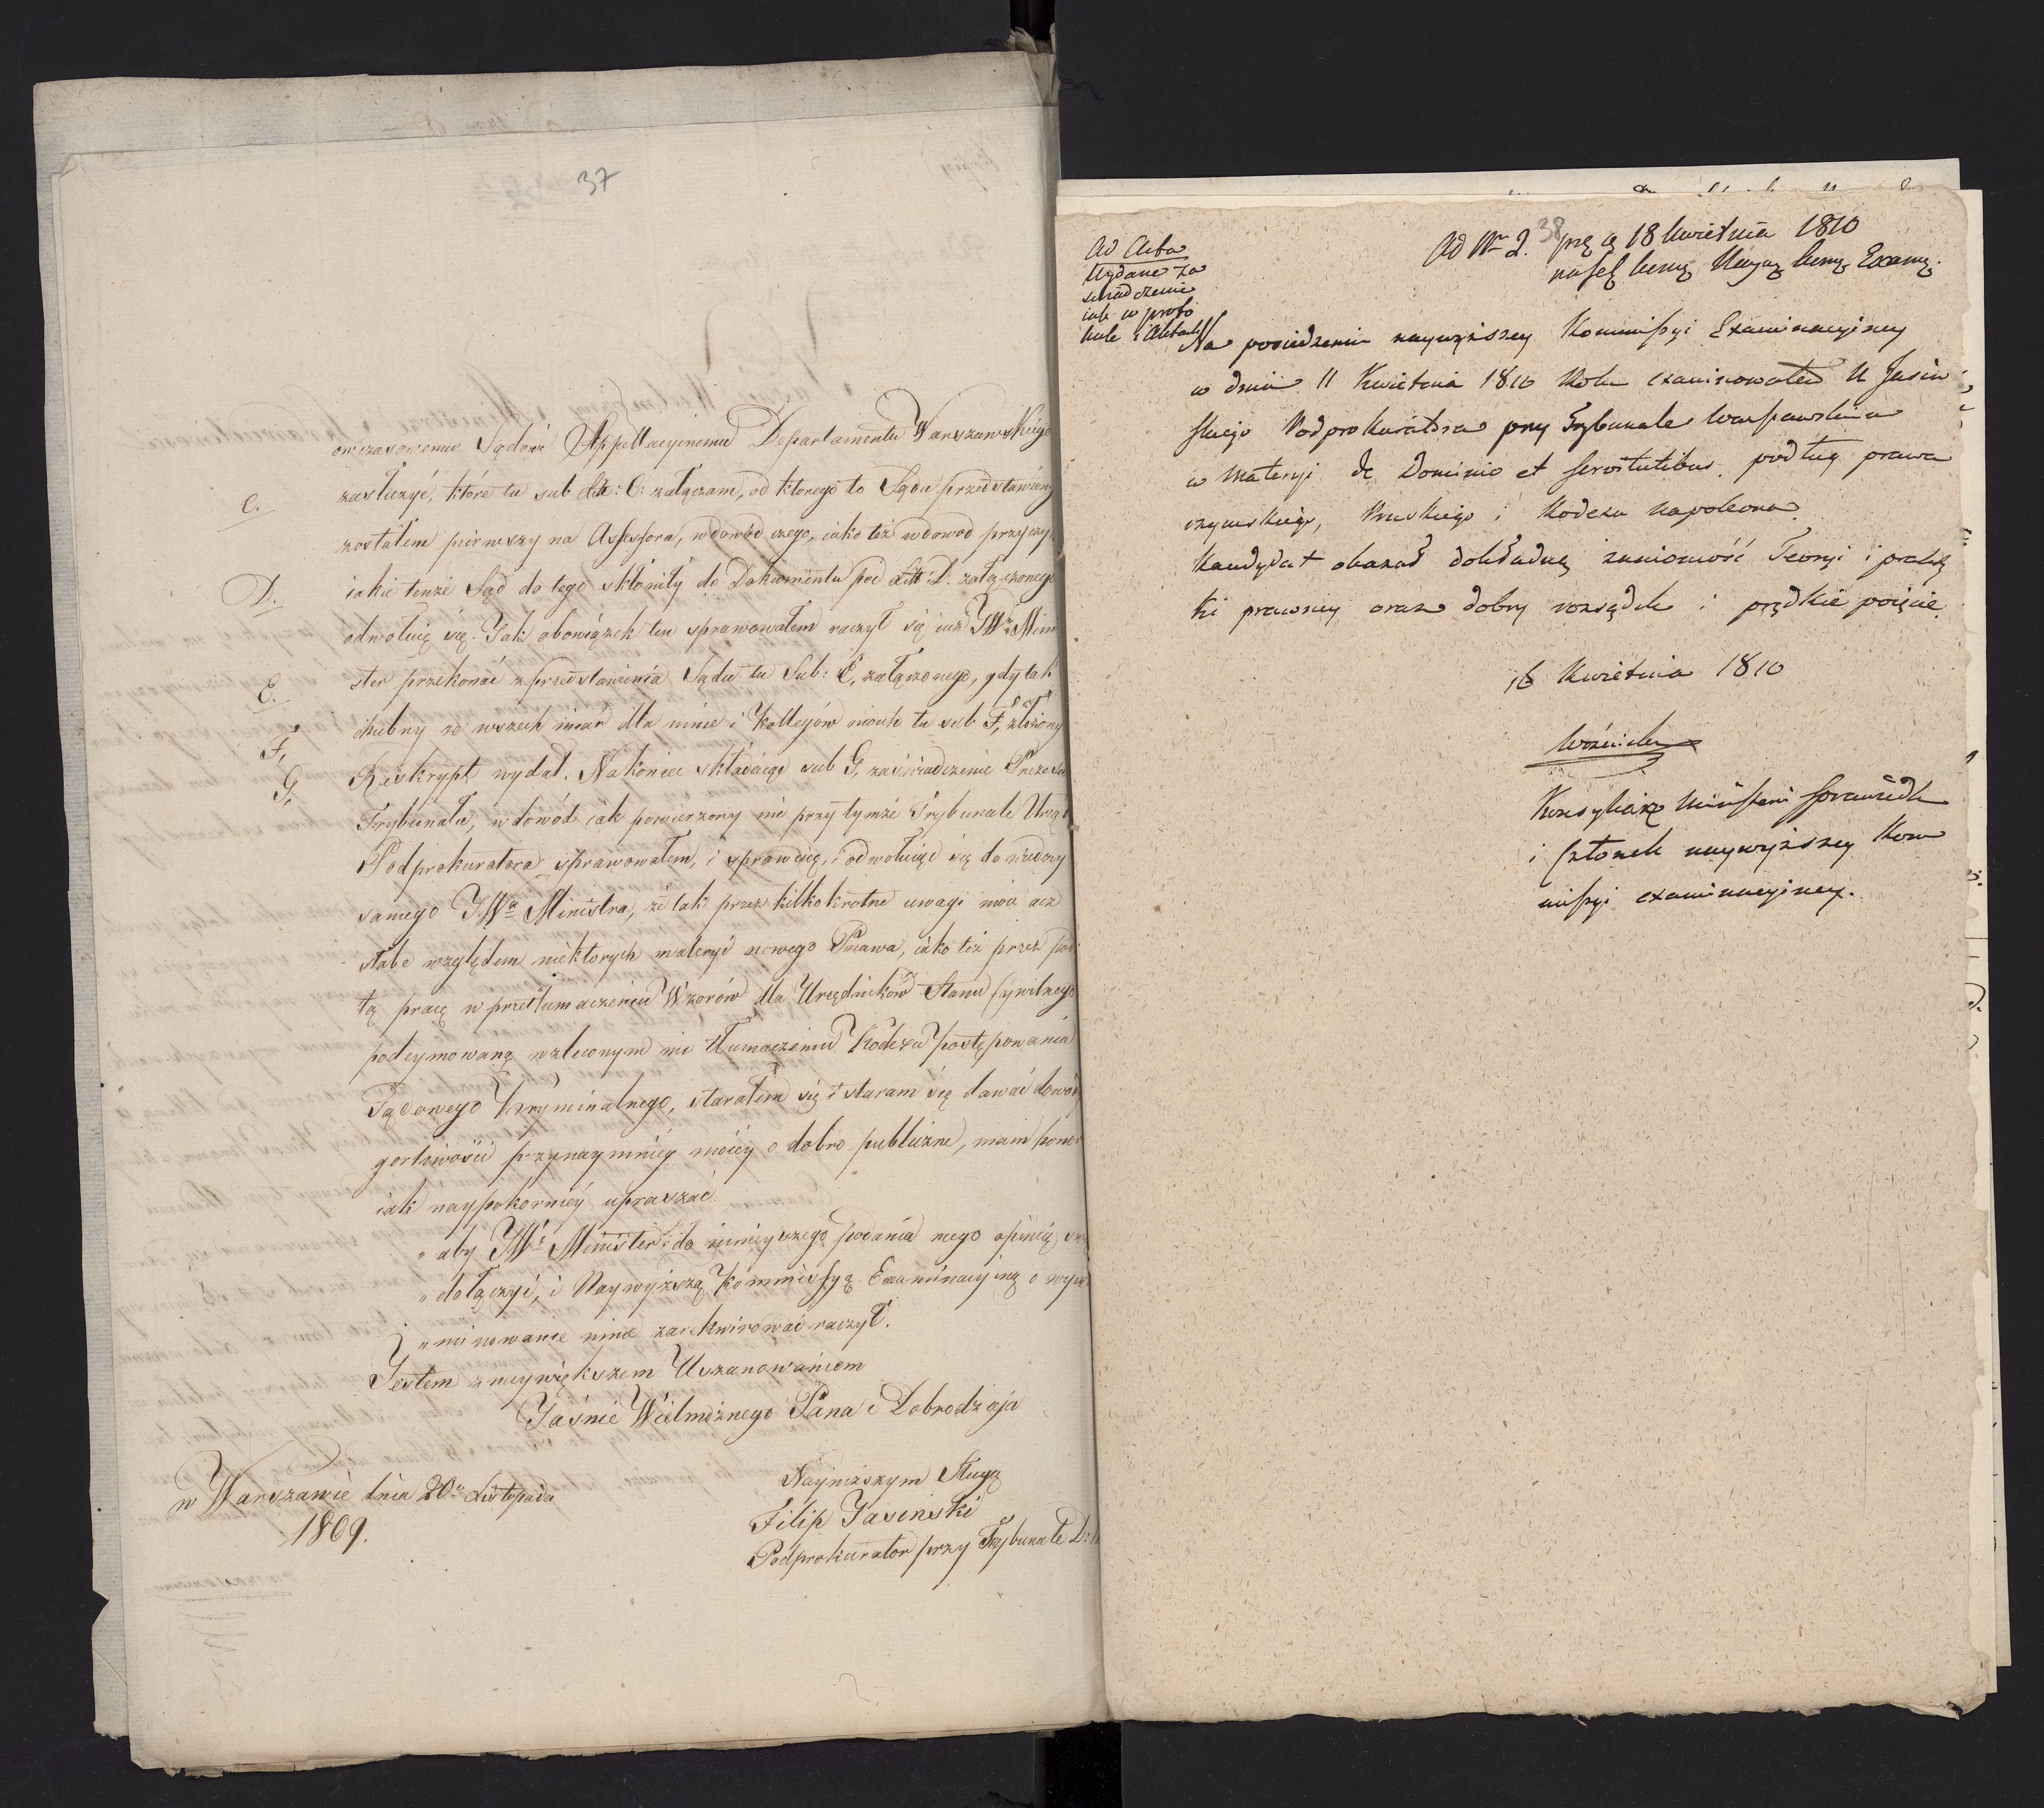 37
owczasowemu Sądowi Appellacyinemu Departamentu Warszawskiego
C.
zasłużyć, które tu sub Litt: C: załączam, od ktorego to Sądu przedstawiony
zostałem pierwszy na Assessora, w dowód czego, iako też w dowod przyczyn
D.
iakie tenże Sąd do tego skłoniły do Dokumentu pod Litt D. załączonego
odwołuię się. Jak obowiązek ten sprawowałem raczył się iuż JWy Mini
E.
ster przekonać z przedstawienia Sądu tu Sub: E, załączonego, gdy tak
F,
chlubny ze wszech miar dla mnie i Kollegów moich tu sub F, złożony
G,
Reskrypt wydał. Nakoniec składaiąc sub G, zaświadczenie Prezesa
Trybunału, w dowód iak powierzony mi przy tymże Trybunale Urząd
Podprokuratora sprawowałem, i sprawuię, i odwołuiąc się do wiedzy
samego JWgo Ministra, że tak przez kilkokrotne uwagi moie acz
słabe względem niektorych materyi nowego Prawa, iako też przez
tą pracę w przetłumaczeniu Wzorów dla Urzędników Stanu Cywilnego
podeymowaną w zleconym mi tłumaczeniu Kodexu postępowania
Sądowego Kryminalnego, starałem się i staram się dawać dowody
gorliwości przynaymniéy moiéy o dobro publiczne, mam honor
iak naypokorniéy upraszać
„ aby JWy Minister do ninieyszego podania mego opinią
„ dołączyć, i Naywyższą Kommissyą Examinacyiną o wyexa
„ minowanie mnie zarekwirować raczył.
Jestem z naywiększem Uszanowaniem
Jaśnie Wielmożnego Pana i Dobrodzieja
Nayniższym Sługą
w Warszawie dnia 20go Listopada
1809.
Filip Jasinski
Podprokurator przy Trybunale D:
38
Ad Acta
Wydane za
świadczenie
iak w proto
kule i Aktach
Ad Nr 2.
18 Kwietnia 1810
Na posiedzeniu naywyższey Kommissyi Examinacyiney
w dniu 11 Kwietnia 1810 Roku examinowałem U Jasiń
skiego Podprokuratora przy Trybunale Warszawskim
w materyi de Dominio et servitutibus podług prawa
rzymskiego, Pruskiego i Kodexu Napoleona.
Kandydat okazał dokładną znaiomość Teoryi i prakty
ki prawney oraz dobry rozsądek i prędkie poięcie.
16 Kwietnia 1810
Woźnicki
Konsyliarz Ministerii Sprawiedli
i Członek naywyższey Kom
missyi examinacyiney.